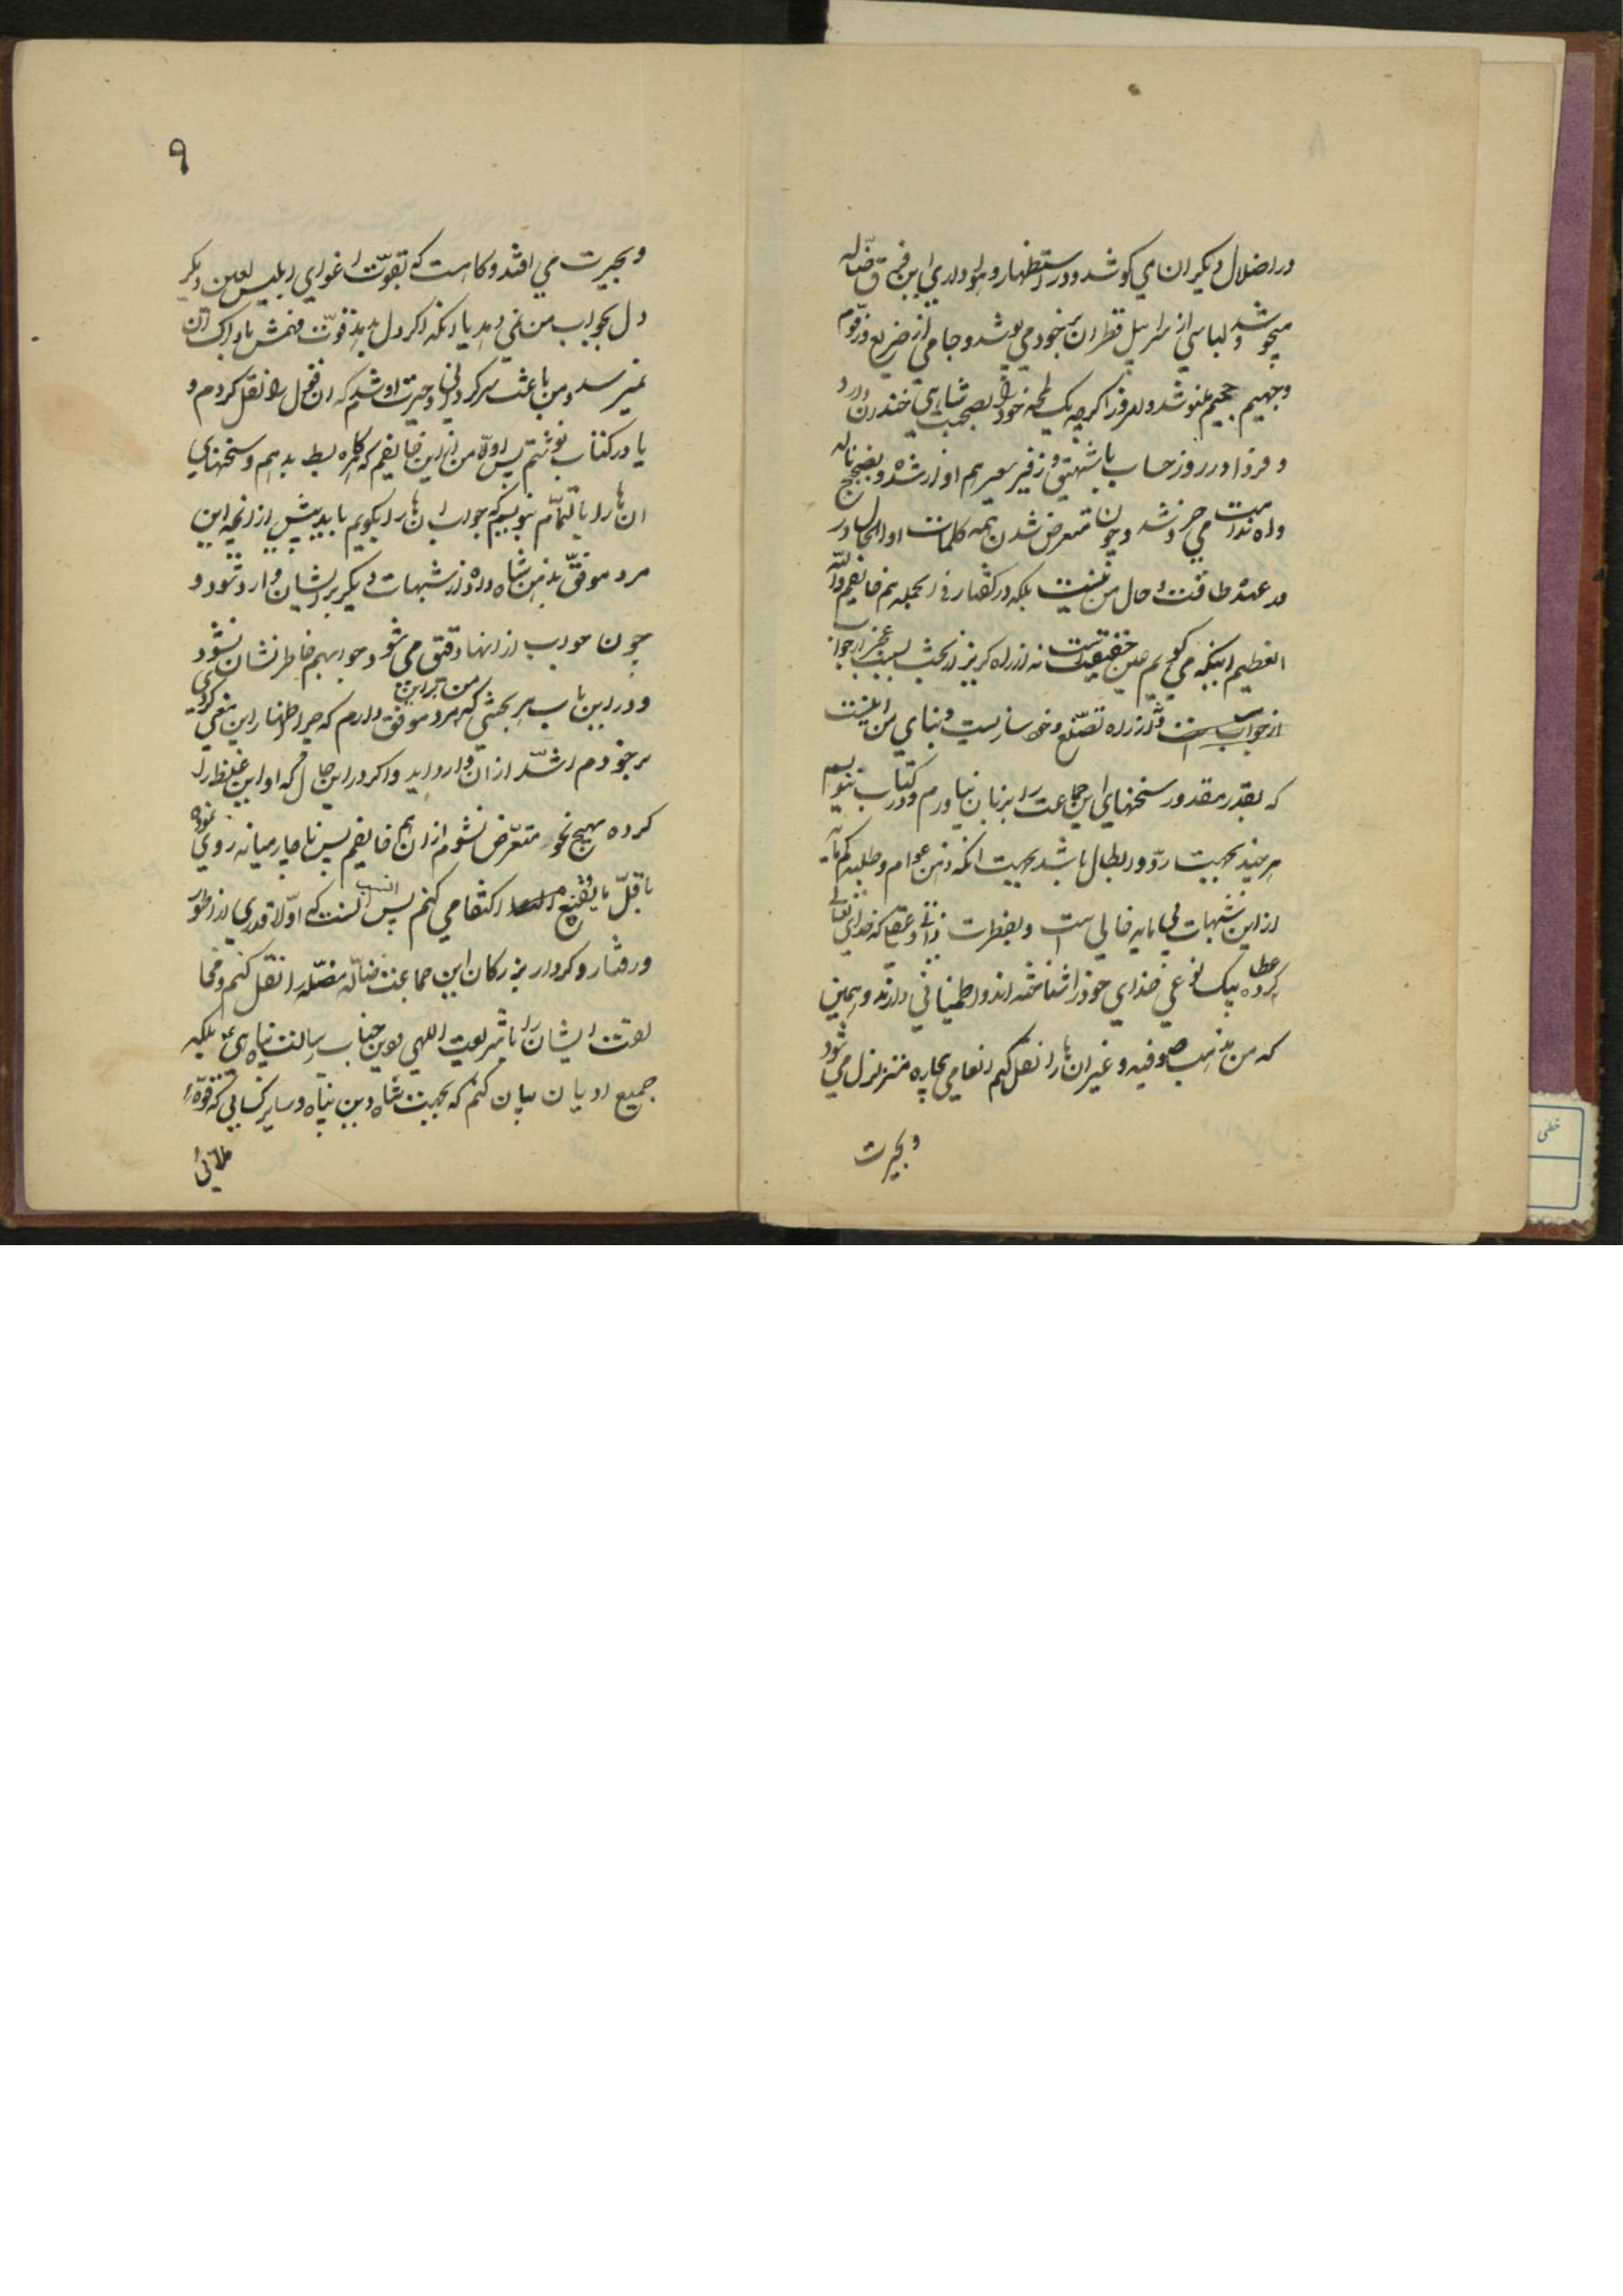 در اضلال دیکران می کوشد و در استظهار و هواداری این فرقه ضاله
میجوشد و لباسی از سرابیل قطران بخود می پوشد و جامی از ضریع و زقّوم
و جهیم جحیم مینوشد و امروز اکرچه یک لمحه خود را بصحبت شاهی خندان دارد
و فردا در روز حساب با شهیق و زفیر سعیر هم اواز شده و بضجیج ناله
واه ندامت می خروشد و چون متعرض شدن همه کلمات او الحال در
عهدهٔ طاقت و حال من نیست بلکه در کفتار فی الجمله هم خایفم والله
العظیم اینکه می کویم عین حقیقت است نه از راه کریز از بحث بسبب عجز از جواب
از جواب است و نه از راه تصنّع و خود سازیست و بنای من اینست
که بقدر مقدور سخنهای این جماعت را بر زبان نیاورم و در کتاب ننویسم
هر چند بجهت ردّ و ابطال باشد بجهت انکه ذهن عوام و طلبه کم مایه
از این شبهات بی مایه خالی است و بفطرت ذاتی و عقلی که خدای تعالی
عطا کرده بیک نوعی خدای خود را شناخته اند و اطمینانی دارند و همین
که من مذهب صوفیه و غیر ان ها را نقل کنم انعامی بیچاره متزلزل می شود
و بحیرت
۹
و بحیرت می افتد و کاهست که بقوّت اغوای ابلیس لعین دیکر
دل بجواب من نمی دهد یا انکه اکر دل بدهد قوّت فهمش بادراک آن
نمیرسد و من باعث سرکردانی و حیرت او شدم که ان قول را نقل کردم و
یا در کتاب نوشتم پس اولا من از این خایفم که هرکاه بسط بدهم و سخنهای
ان ها را بالتمام بنویسم که جواب ان ها را بکویم باید بیش از انچه این
مرد موفق بذهن شاه داده از شبهات دیکر بر ایشان وارد شود و
چون جواب از انها دقیق می شود و جوابهم خاطر نشان نشود
و در این باب هر بحثی که من بر این مرد موفق دارم که چرا اظهار این معنی کردی
بر خودم اشدّ از ان وارد اید و اکر در این حال که او این غلط را
کرده بهیچ نحو متعرّض نشوم از ان هم خایفم پس ناچار میانه روی نموده
باقلّ ما یقنع اکتفا می کنم پس انسب انست که اوّلا قدری از اطوار
و رفتار و کردار بزرکان این جماعت ضالّه مضلّه را نقل کنم و مخا
لفت ایشان را با شریعت اللهی و دین جناب رسالت پناهی بلکه
جمیع ادیان بیان کنم که بجهت شاه دین پناه و سایر کسانی که قوّهٔ